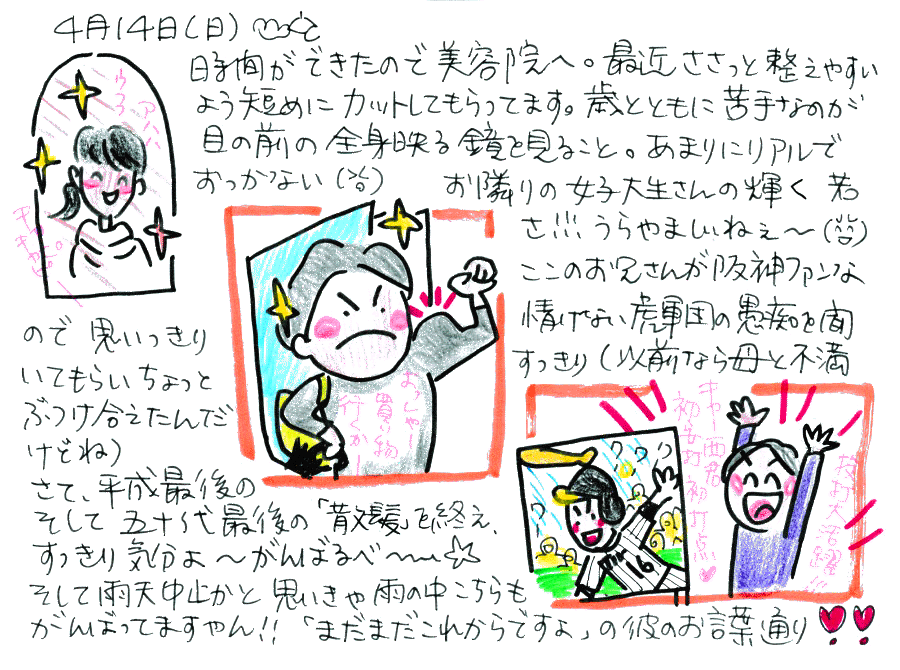 4月14日(日)
時間ができたので美容院へ。最近ささっと整えやすい
よう短めにカットしてもらってます。歳とともに苦手なのが
目の前の全身映る鏡を見ること。あまりにリアルで
おっかない(笑)
お隣りの女子大生さんの輝く若
さ!!!うらやましいねぇ〜(笑)
ここのお兄さんが阪神ファンな
ので思いっきり
情けない虎軍団の愚痴を聞
いてもらいちょっと
すっきり(以前なら母と不満
ぶつけ合えたんだ
けどね)
さて、平成最後の
そして五十代最後の「散髪」を終え、
すっきり気分よ〜がんばるべ〜
そして雨天中止かと思いきや雨の中こちらも
がんばってますやん!!「まだまだこれからですよ」の彼のお言葉通り
アハハ
ウフフ
おっしゃー
買い物
行くかー
キャー西君
初安打初打点
投打大活躍
16